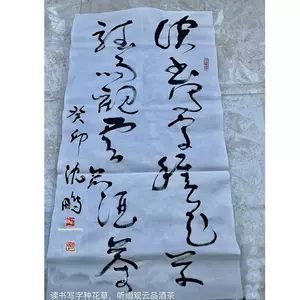 读书写字种花草
听雨观云品酒茶
癸卯 沈鹏
读书写字种花草，听雨观云品酒茶